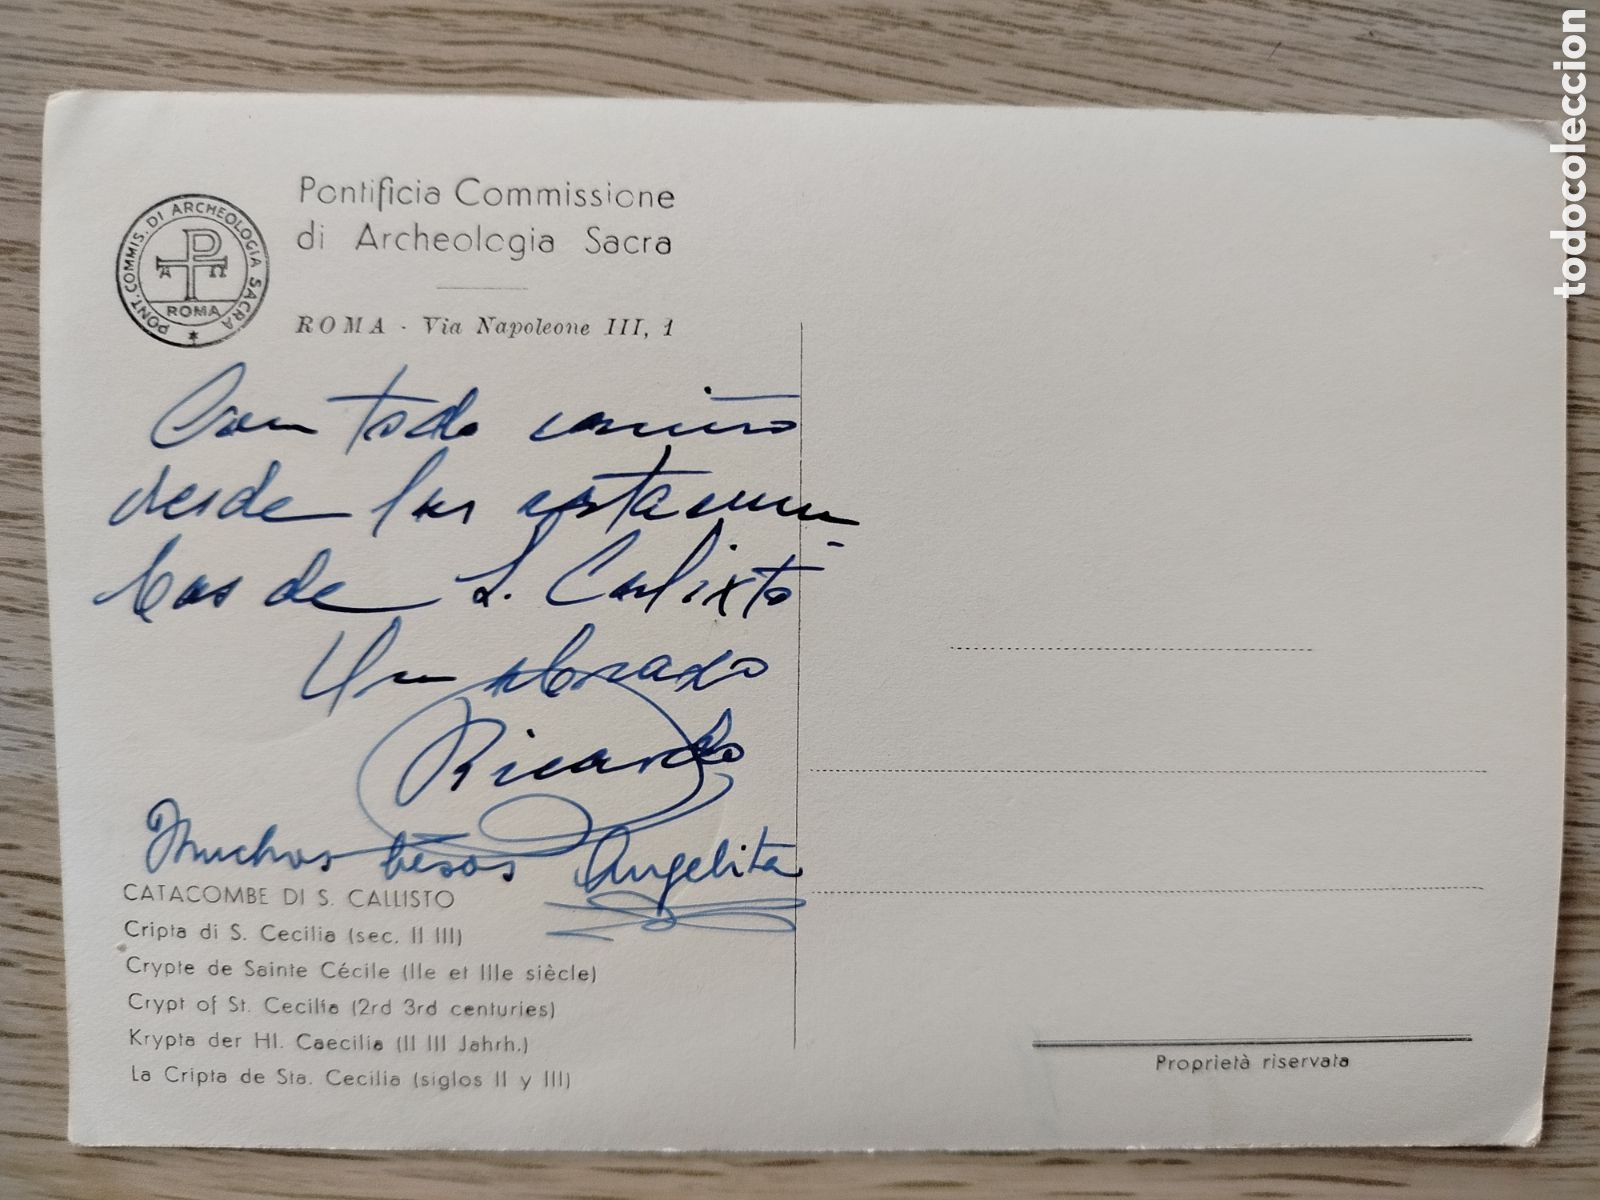 Pontificia Commissione
di Archeologia Sacra
PONT. COMMIS. DI ARCHEOLOGIA SACRA
A Ω
ROMA
ROMA - Via Napoleone III, 1
Con todo cariño
desde las catacum-
bas de S. Calixto
Un abrazo
Ricardo
Muchos besos Angelita
CATACOMBE DI S. CALLISTO
Cripta di S. Cecilia (sec. II III)
Crypte de Sainte Cécile (IIe et IIIe siècle)
Crypt of St. Cecilia (2rd 3rd centuries)
Krypta der Hl. Caecilia (II III Jahrh.)
La Cripta de Sta. Cecilia (siglos II y III)
Proprietà riservata
todocoleccion